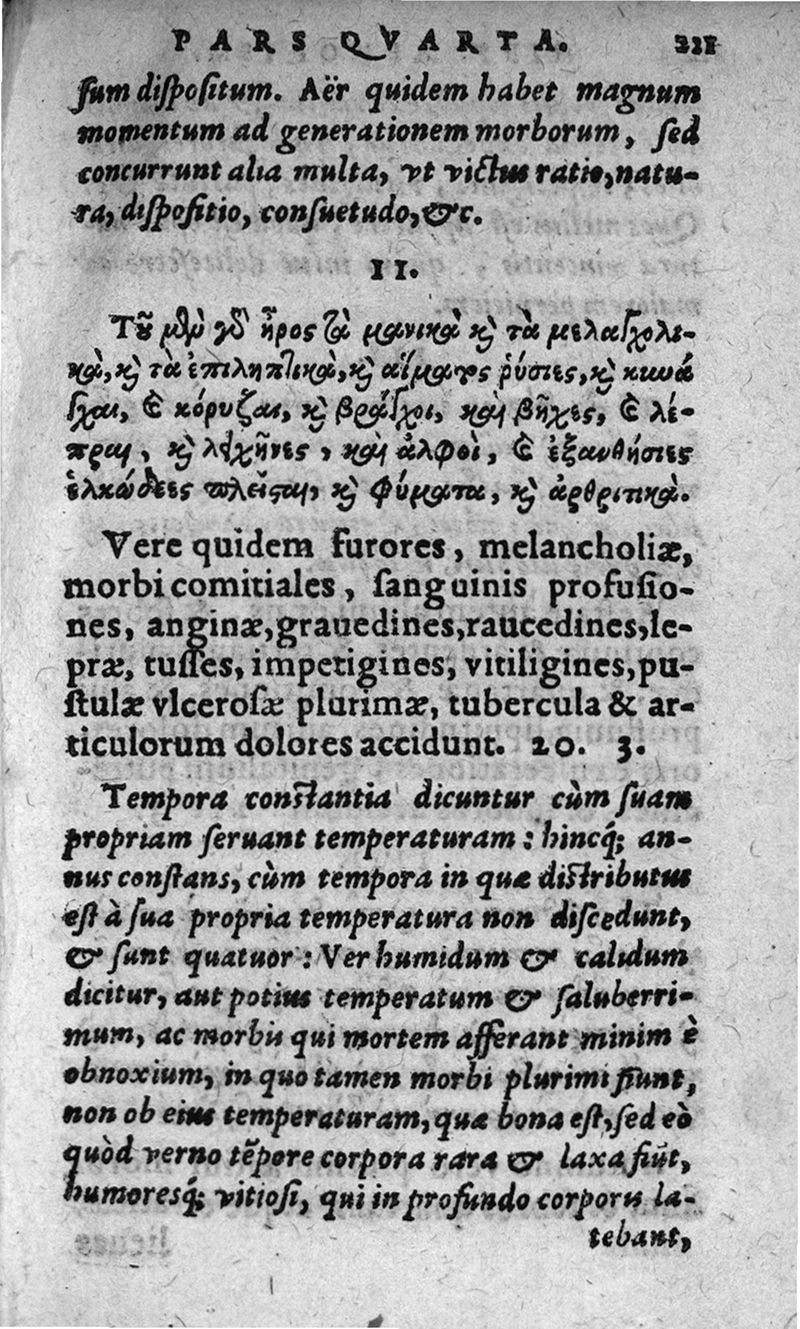 PARS QVARTA. 221
ſum diſpoſitum. Aër quidem habet magnum
momentum ad generationem morborum, ſed
concurrunt alia multa, vt victus ratio, natu-
ra, diſpoſitio, conſuetudo, &c.
II.
Τοῦ μὲν γὸ ἦρος τὰ μανικὰ κ̀ τὰ μελαγχολι-
κὰ, κ̀ τὰ ἐπιληπτικὰ, κ̀ αἵματος ῥύσιες, κ̀ κυνά
γχαι, καὶ κόρυζαι, κ̀ βράγχοι, καὶ βῆχες, καὶ λέ-
πραι, κ̀ λειχῆνες, καὶ ἀλφοὶ, καὶ ἐξανθήσιες
ἑλκώδεες πλεῖσται, κ̀ φύματα, κ̀ ἀρθριτικὰ.
Vere quidem furores, melancholiæ,
morbi comitiales, ſanguinis profuſio-
nes, anginæ, grauedines, raucedines, le-
præ, tuſſes, impetigines, vitiligines, pu-
ſtulæ vlceroſæ plurimæ, tubercula & ar-
ticulorum dolores accidunt. 20. 3.
Tempora conſtantia dicuntur cùm ſuam
propriam ſeruant temperaturam: hincq́; an-
nus conſtans, cùm tempora in quæ diſtributus
eſt à ſua propria temperatura non diſcedunt,
& ſunt quatuor: Ver humidum & calidum
dicitur, aut potius temperatum & ſaluberri-
mum, ac morbis qui mortem afferant minimè
obnoxium, in quo tamen morbi plurimi fiunt,
non ob eius temperaturam, quæ bona eſt, ſed eò
quòd verno tẽpore corpora rara & laxa fiũt,
humoresq́; vitioſi, qui in profundo corporis la-
tebant,